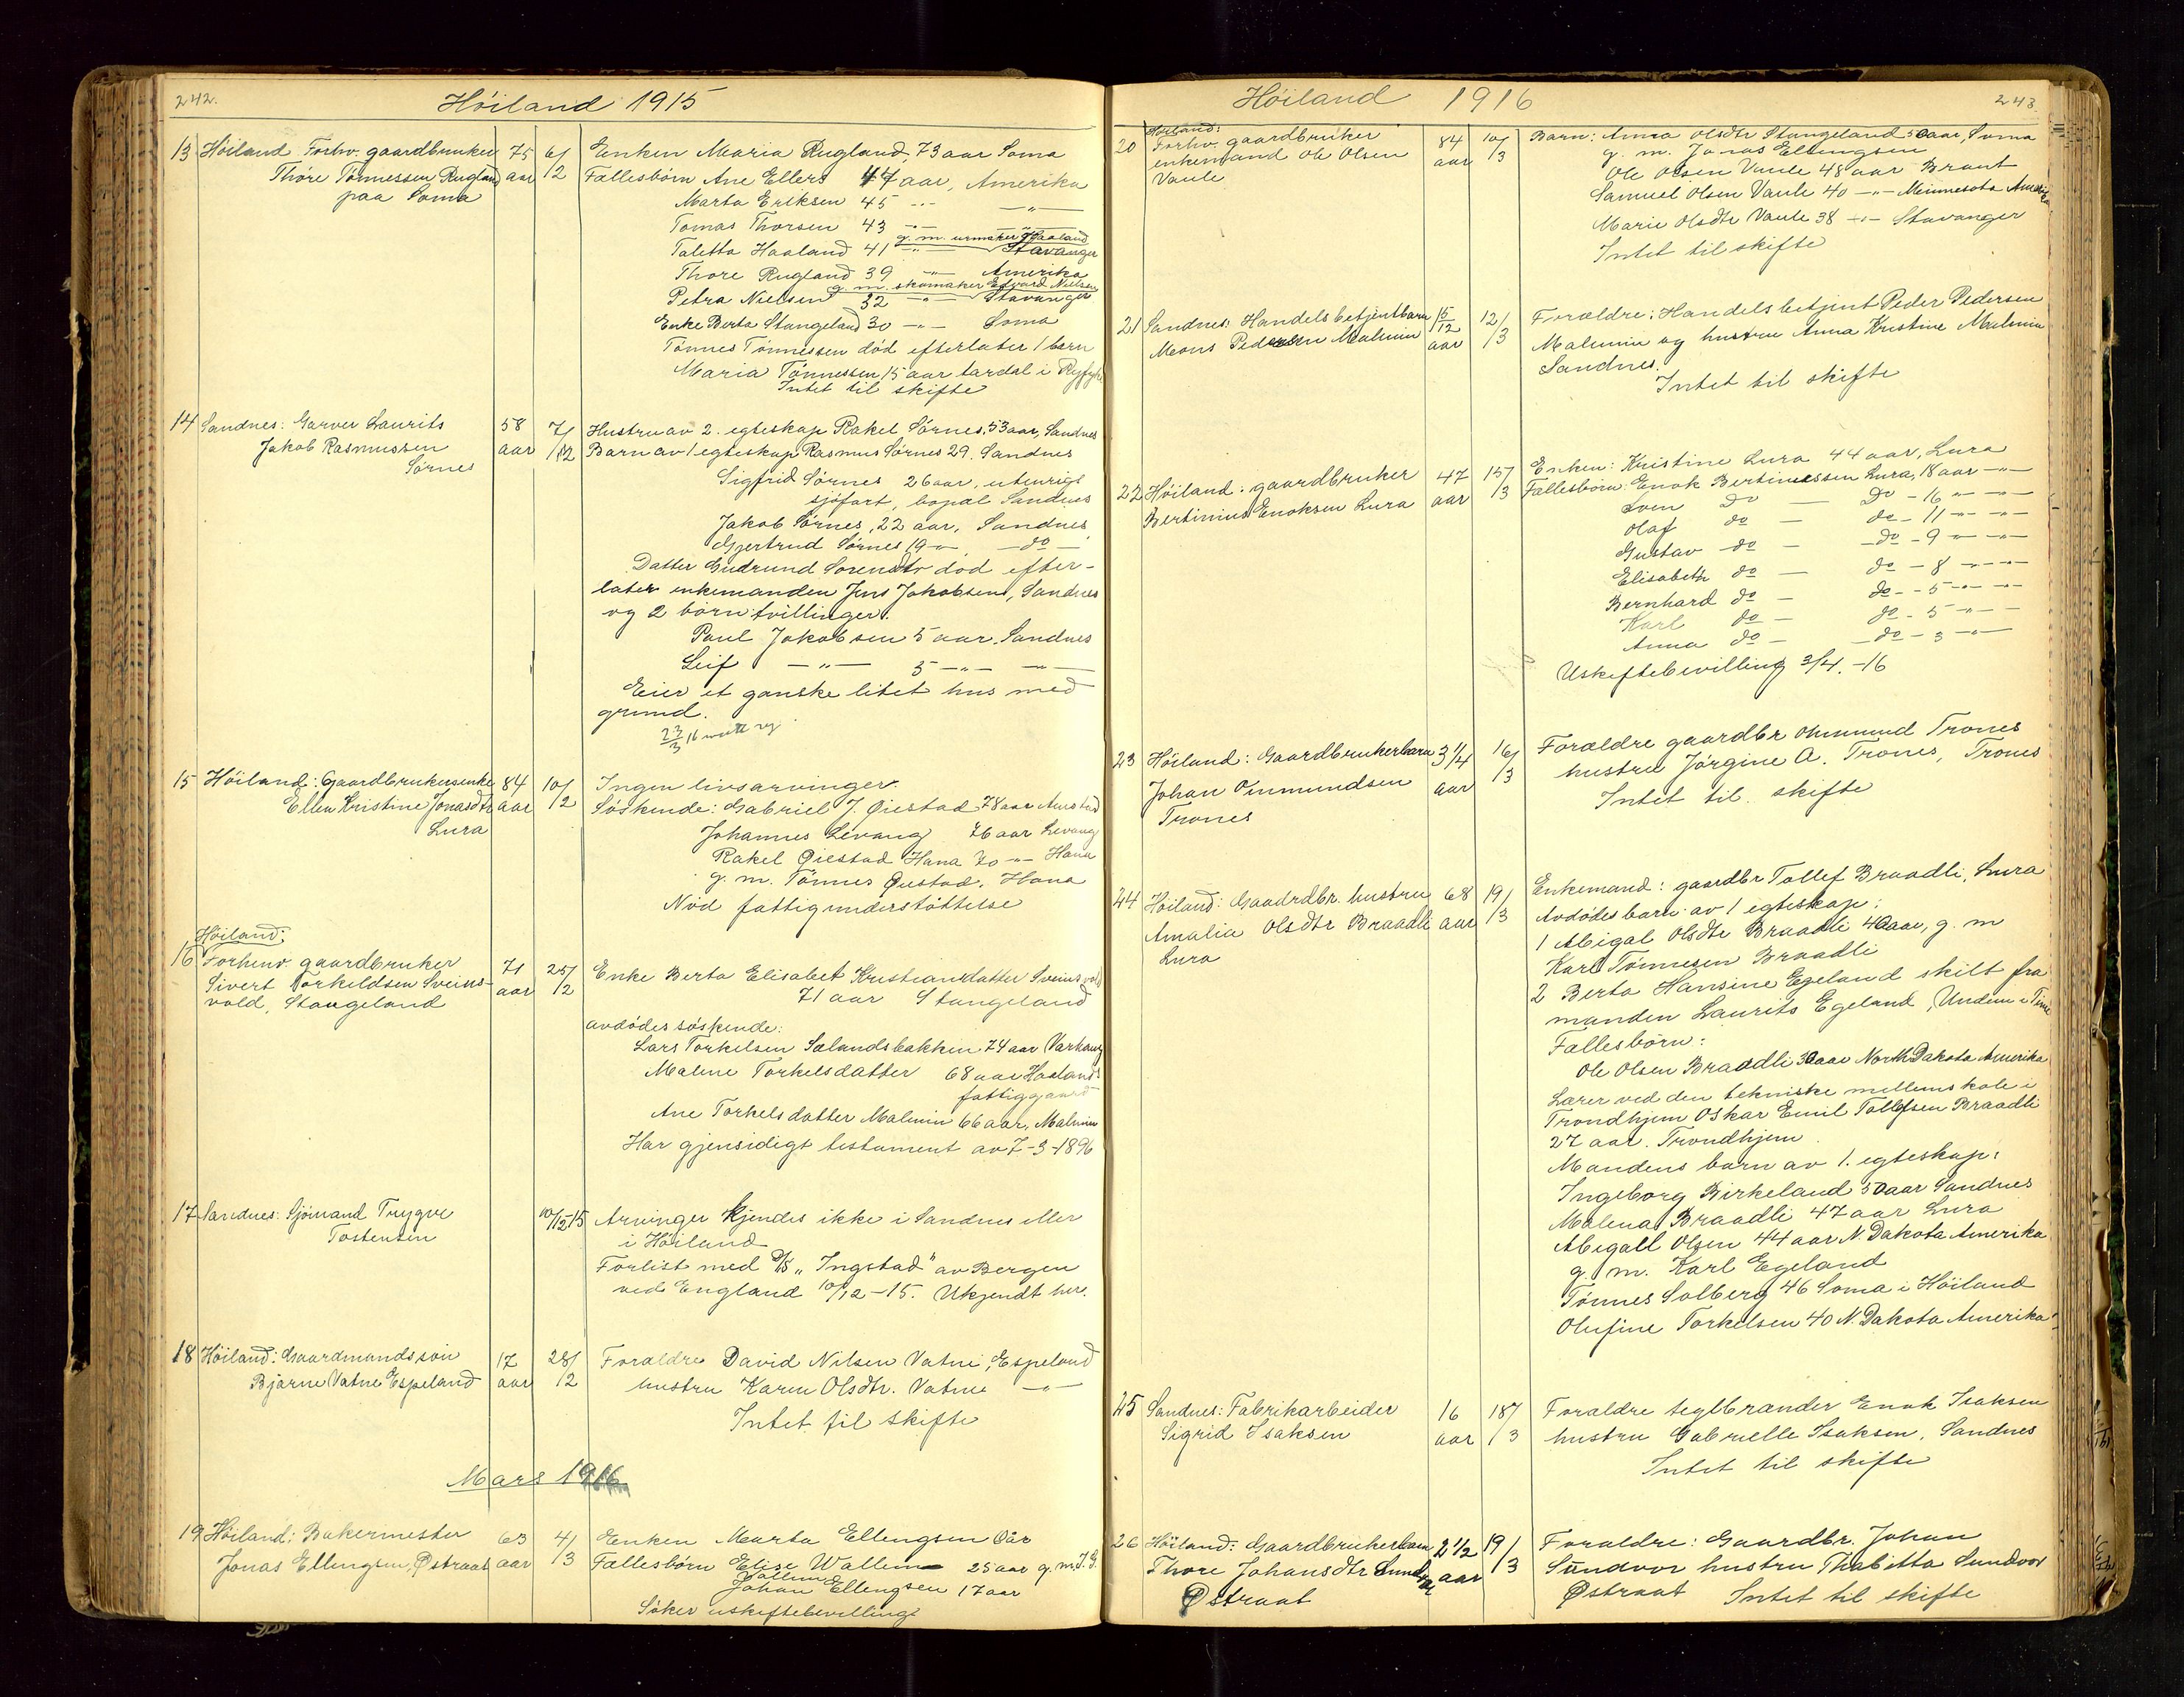 242.
Höiland 1915
13 Höiland Forhv. gaardbruker 75 6/ Enken Maria Rugland, 73 aar Soma
Thore Tönnessen Rugland aar 12 Fællesbörn Ane Ellers 47 aar, Amerika
paa Soma Marta Eriksen 45 -"- -"-
Tomas Thorsen 43 -"- -"-
g. m. urmaker Haaland
Taletta Haaland 41 -"- Stavanger
Thore Rugland 39 -"- Amerika
g. m. skomaker Edvard Nielsen
Petra Nielsen 32 -"- Stavanger
Enke Berta Stangeland 30 -"- Soma
Tönnes Tönnessen död efterlater 1 barn
Maria Tönnessen 15 aar i Ryfylke
Intet til skifte
14 Sandnes: Garver Laurits 58 7/ Hustru av 2. egteskap Rakel Sörnes, 53 aar, Sandnes
Jakob Rasmussen aar /12 Barn av 1 egteskap Rasmus Sörnes 29. Sandnes
Sörnes
Sigfrid Sörnes 26 aar, utenrigs
sjöfart, bopæl Sandnes
Jakob Sörnes, 22 aar, Sandnes
Gjertrud Sörnes 19 -"- - do -
Datter Gudrund död efter-
later enkemanden Jens Jakobsen, Sandnes
og 2 börn tvillinger.
Paul Jakobsen 5 aar. Sandnes
Leif -"- 5 -"- -"-
Eier et ganske litet hus med
grund.
23/3 16
15 Höiland: Gaardbrukerenke 84 10/ Ingen livsarvinger.
Ellen Kristine Jonasdtr aar 12 Söskende: Gabriel J. Öiestad 78 aar
Lura Johannes Levang 76 aar Levang
Rakel Öiestad Hana 70 -"- Hana
g. m. Tönnes Öiestad, Hana
Nöd fattigunderstöttelse
Höiland:
16 Forhenv. gaardbruker 71 25/ Enke Berta Elisabet Kristiansdatter Sveinsvold
Sivert Torkeldsen Sveins- aar 12 71 aar Stangeland
vold, Stangeland
avdödes söskende:
Lars Torkelsen Sælandsbakken 74 aar Varhaug
Malene Torkelsdatter 68 aar Haalands
fattiggaard
Ane Torkelsdatter Malmin 66 aar, Malmin
Har gjensidigt testament av 7-3-1896
17 Sandnes: Sjömand Trygve 10/12-15 Arvinger kjendes ikke i Sandnes eller
Tostensen i Höiland
Forlist med D/S "Ingstad" av Bergen
ved England 10/12-15. Ukjendt her.
18 Höiland: Gaardmandssön 17 28/ Forældre David Nilsen Vatne, Espeland
Bjarne Vatne Espeland aar 12 hustru Karen Olsdtr. Vatne -"-
Intet til skifte
Mars 1916
19 Höiland: Bakermester 63 4/ Enken Marta Ellengsen
Jonas Ellengsen, Østraat aar /3 Fællesbörn Elise Wallem 25 aar g. m. J. G.
Wallem
Johan Ellengsen 17 aar
Söker uskiftebevilling
Höiland 1916
243
Höiland:
20 Forhv. gaardbruker 84 10/ Barn: Anna Olsdtr Stangeland 50 aar, Soma
enkemand Ole Olsen aar /3 g. m. Jonas Ellingsen
Vaule Ole Olsen Vaule 48 aar Braut
Samuel Olsen Vaule 40 -"- Minnesota Amerika
Marie Olsdtr Vaule 38 -"- Stavanger
Intet til skifte
21 Sandnes: Handelsbetjentbarn 15/12 12/ Forældre: Handelsbetjent Peder Pedersen
Mons Pedersen Malmin aar /3 Malmin og hustru Anna Kristine Malmin
Sandnes.
Intet til skifte
22 Höiland: gaardbruker 47 15/ Enken: Kristine Lura 44 aar, Lura
Bertinius Enoksen Lura aar /3 Fællesbörn: Enok Bertiniussen Lura, 18 aar -"-
Sven do - do - 16 -"- -"-
Olaf do - do - 11 -"- -"-
Gustav do - do - 9 -"- -"-
Elisabeth do - do - 8 -"- -"-
Bernhard do - do - 5 -"- -"-
Karl do - do - 5 -"- -
Anna do - do - 3 -"-
Uskiftebevilling 3/4.-16
23 Höiland: Gaardbrukerbarn 3 1/4 16/ Forældre gaardbr Ommund Trones
Johan Ommundsen aar /3 hustru Jörgine A. Trones, Trones
Trones Intet til skifte
24 Höiland: Gaardbr. hustru 68 19/ Enkemand: gaardbr Tollef Braadli, Lura
Amalia Olsdtr Braadli aar /3 Avdödes barn av 1 egteskap:
Lura 1 Abigal Olsdtr Braadli 40 aar, g. m
Karl Tönnesen Braadli
2 Berta Hansine Egeland skilt fra
manden Laurits Egeland, Undem i Time
Fællesbörn:
Ole Olsen Braadli 30 aar North Dakota Amerika
Lærer ved den tekniske mellemskole i
Trondhjem Oskar Emil Tollefsen Braadli
27 aar. Trondhjem
Mandens barn av 1. egteskap:
Ingeborg Birkeland 50 aar Sandnes
Malena Braadli 47 aar Lura
Abigall Olsen 44 aar N. Dakota Amerika
g. m. Karl Egeland
Tönnes Solberg 46 Soma i Höiland
Olufine Torkelsen 40 N. Dakota Amerika
25 Sandnes: Fabrikarbeider 16 18/ Forældre teglbrænder Enok Isaksen
Sigrid Isaksen aar /3 hustru Gabrielle Isaksen, Sandnes
Intet til skifte
26 Höiland: Gaardbrukerbarn 2 1/2 19/ Forældre: Gaardbr. Johan
Thore Johansdtr Sundvor aar /3 Sundvor hustru Thabitta Sundvor
Østraat Østraat Intet til skifte